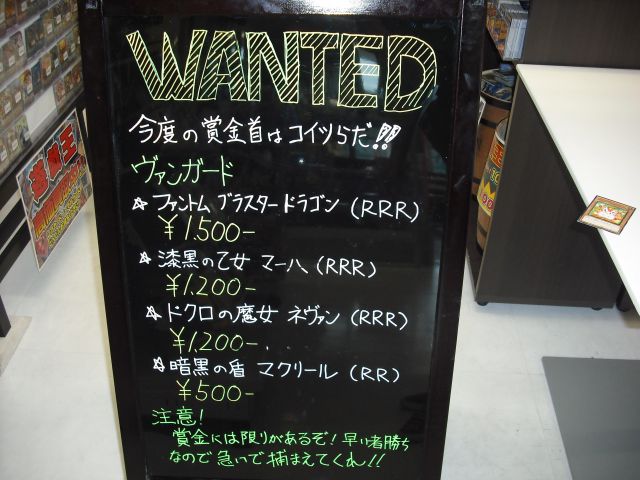 WANTED
今度の賞金首はコイツらだ!!
ヴァンガード
☆ファントム ブラスタードラゴン (RRR)
¥1,500-
☆漆黒の乙女 マーハ (RRR)
¥1,200-
☆ドクロの魔女 ネヴァン (RRR)
¥1,200-
☆暗黒の盾 マクリール (RR)
¥500-
注意!
賞金には限りがあるぞ!早い者勝ち
なので急いで捕まえてくれ!!